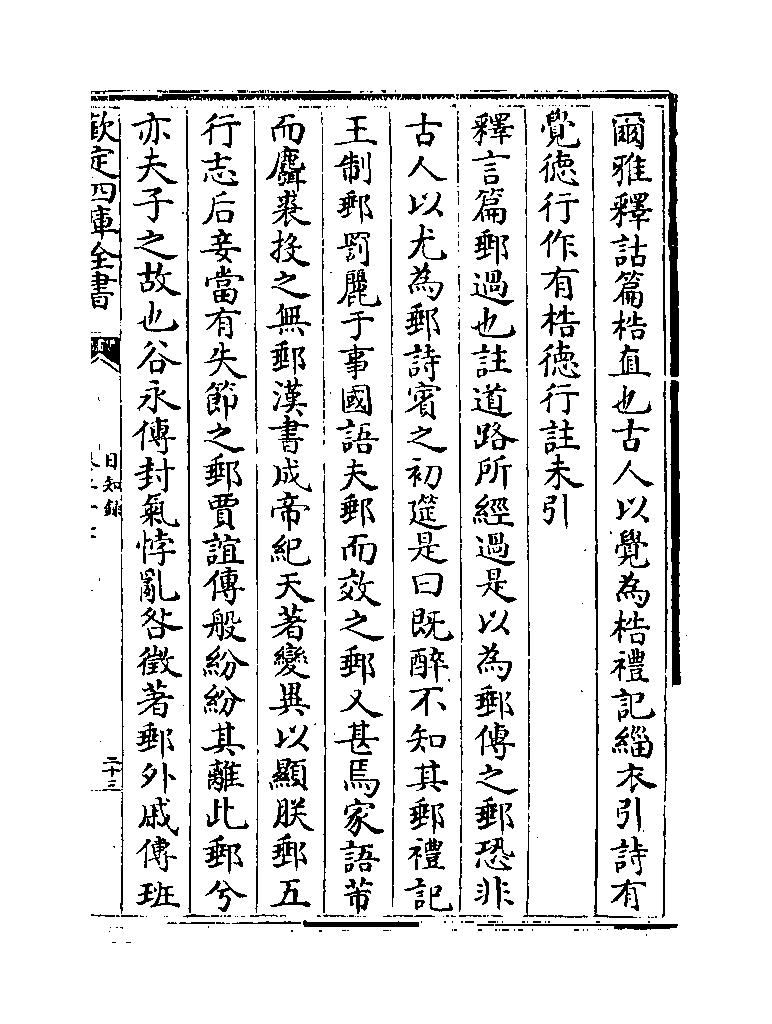 爾雅釋詁篇梏直也古人以覺為梏禮記緇衣引詩有
覺德行作有梏德行註未引
釋言篇郵過也註道路所經過是以為郵傳之郵恐非
古人以尤為郵詩賓之初筵是曰既醉不知其郵禮記
王制郵罰麗于事國語夫郵而效之郵又甚焉家語芾
而麛裘投之無郵漢書成帝紀天著變異以顯朕郵五
行志后妾當有失節之郵賈誼傳般紛紛其離此郵兮
亦夫子之故也谷永傳封氣悖亂咎徵著郵外戚傳班
欽定四庫全書
日知錄
二十三